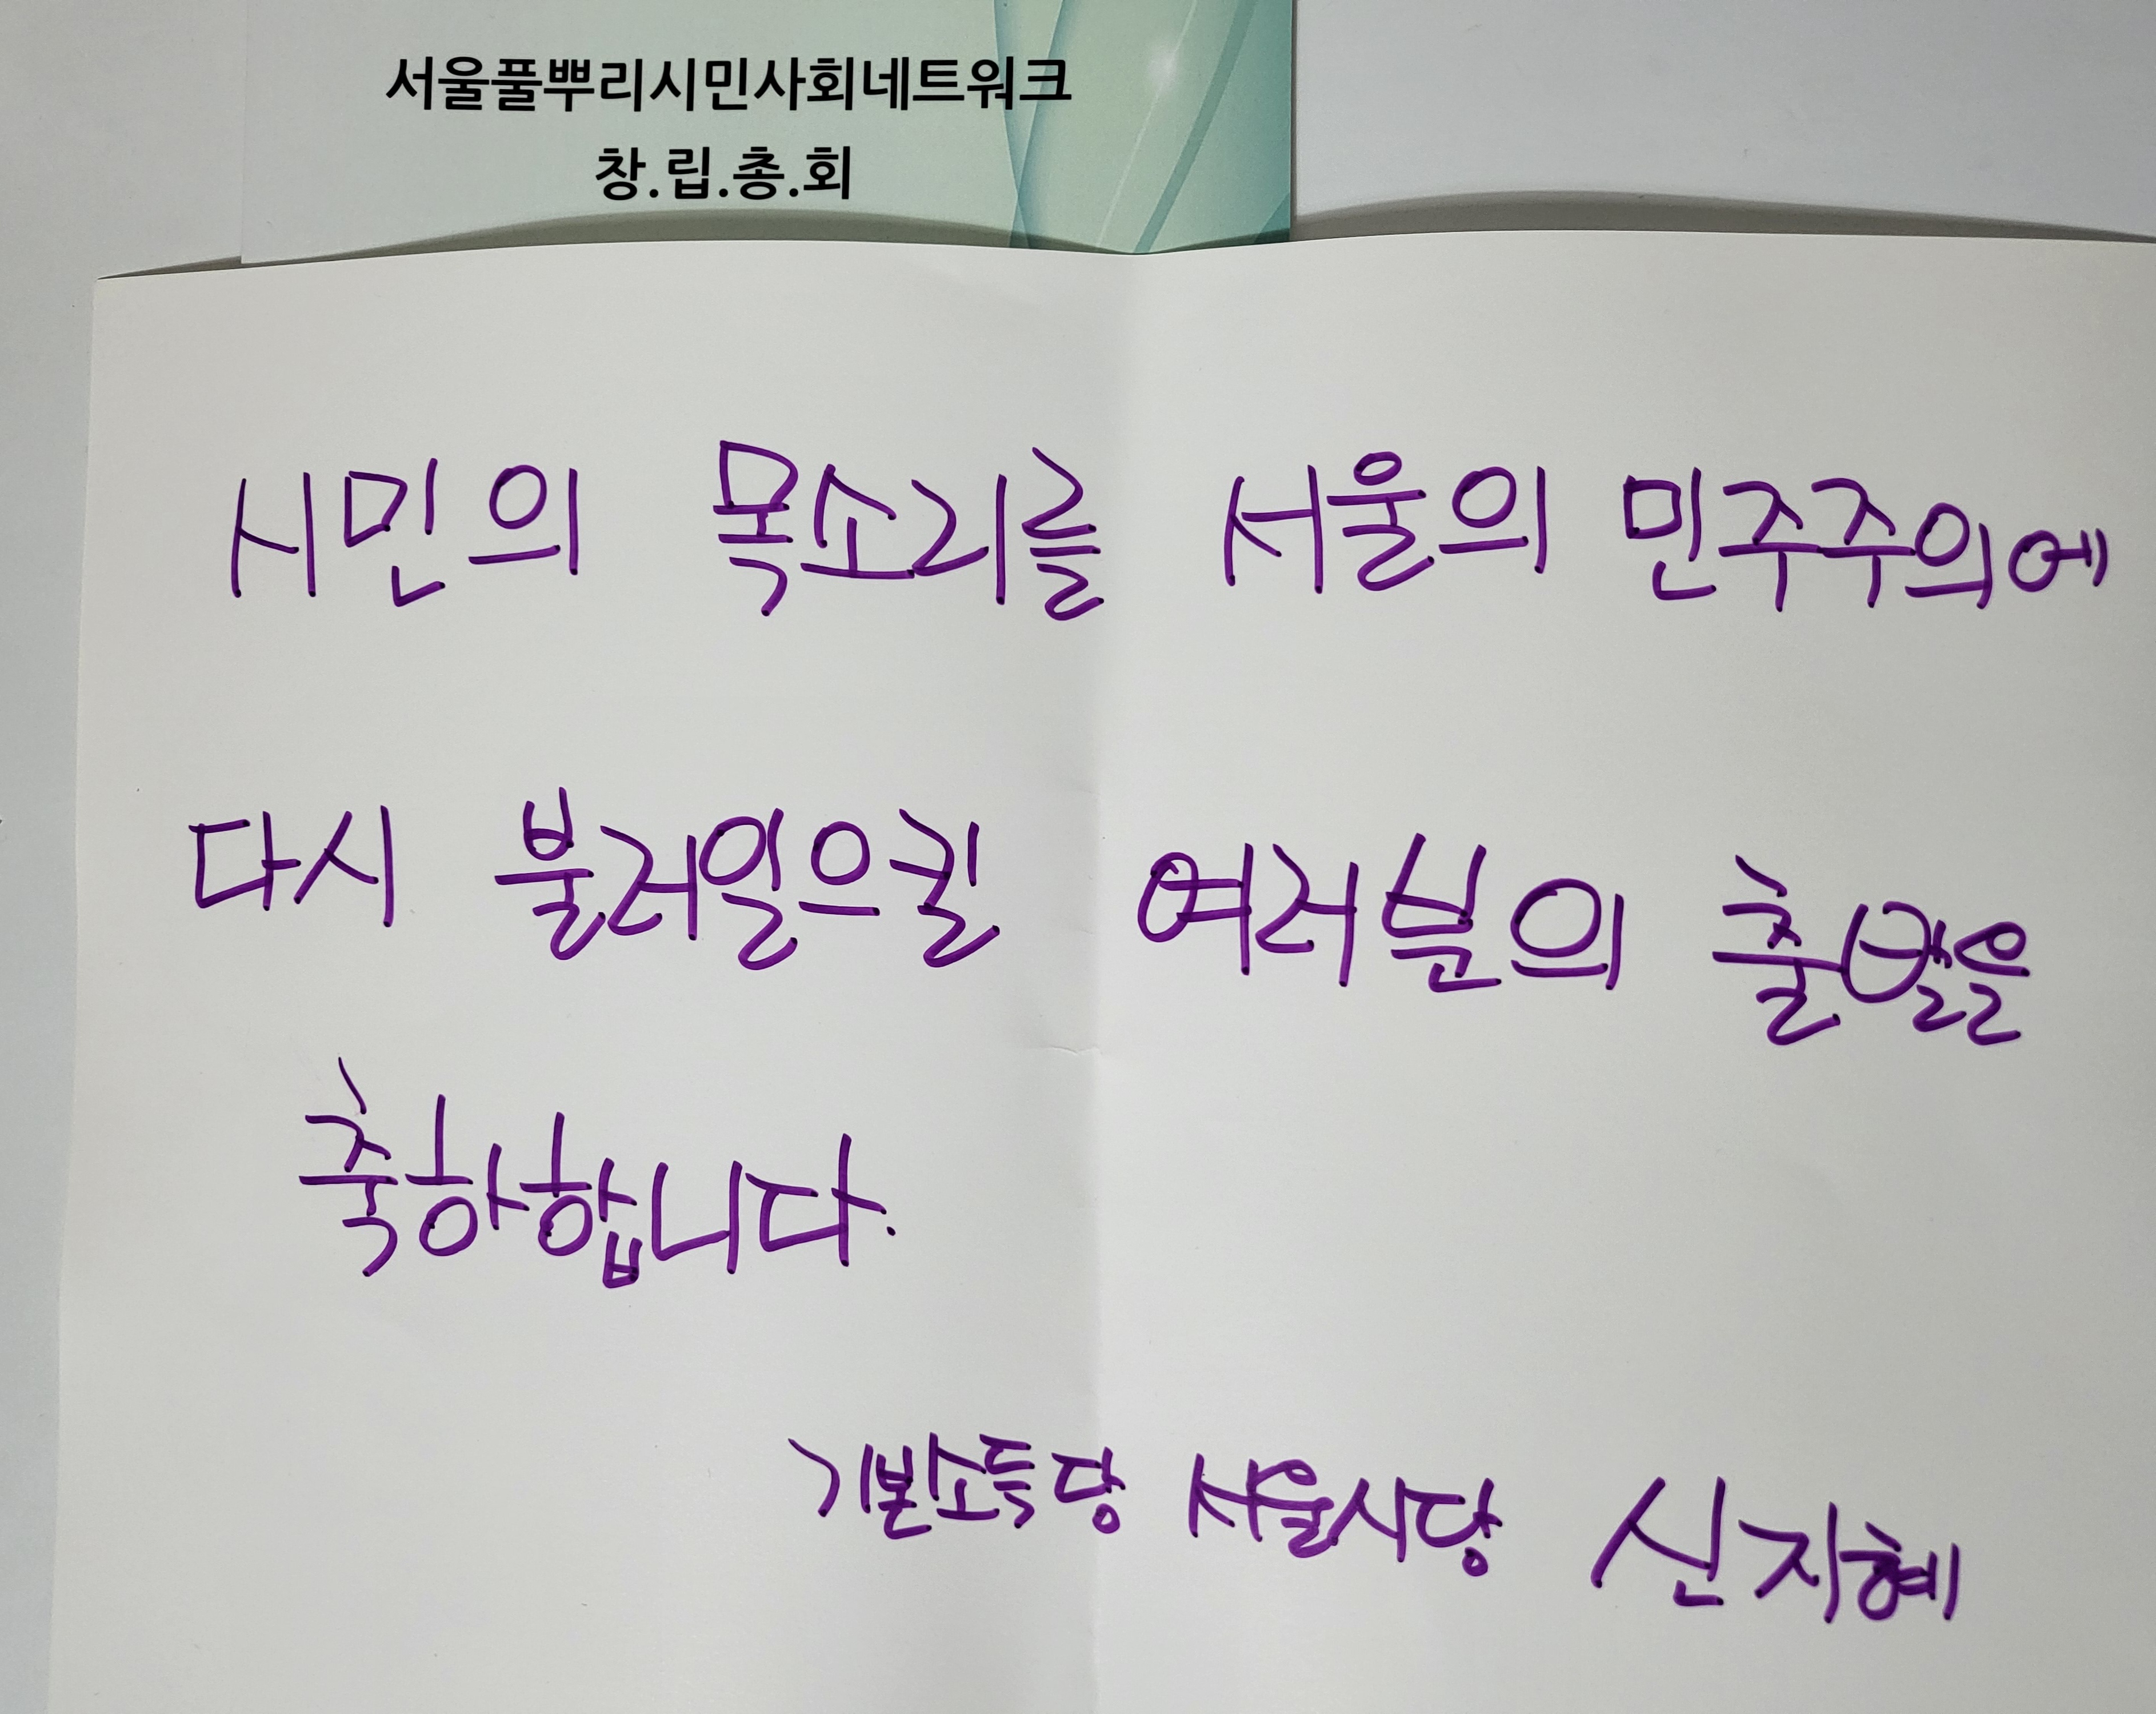 서울풀뿌리시민사회네트워크
창.립.총.회
시민의 목소리를 서울의 민주주의에
다시 불러일으킬 여러분의 출발을
축하합니다.
기본소득당 서울시당 신지혜